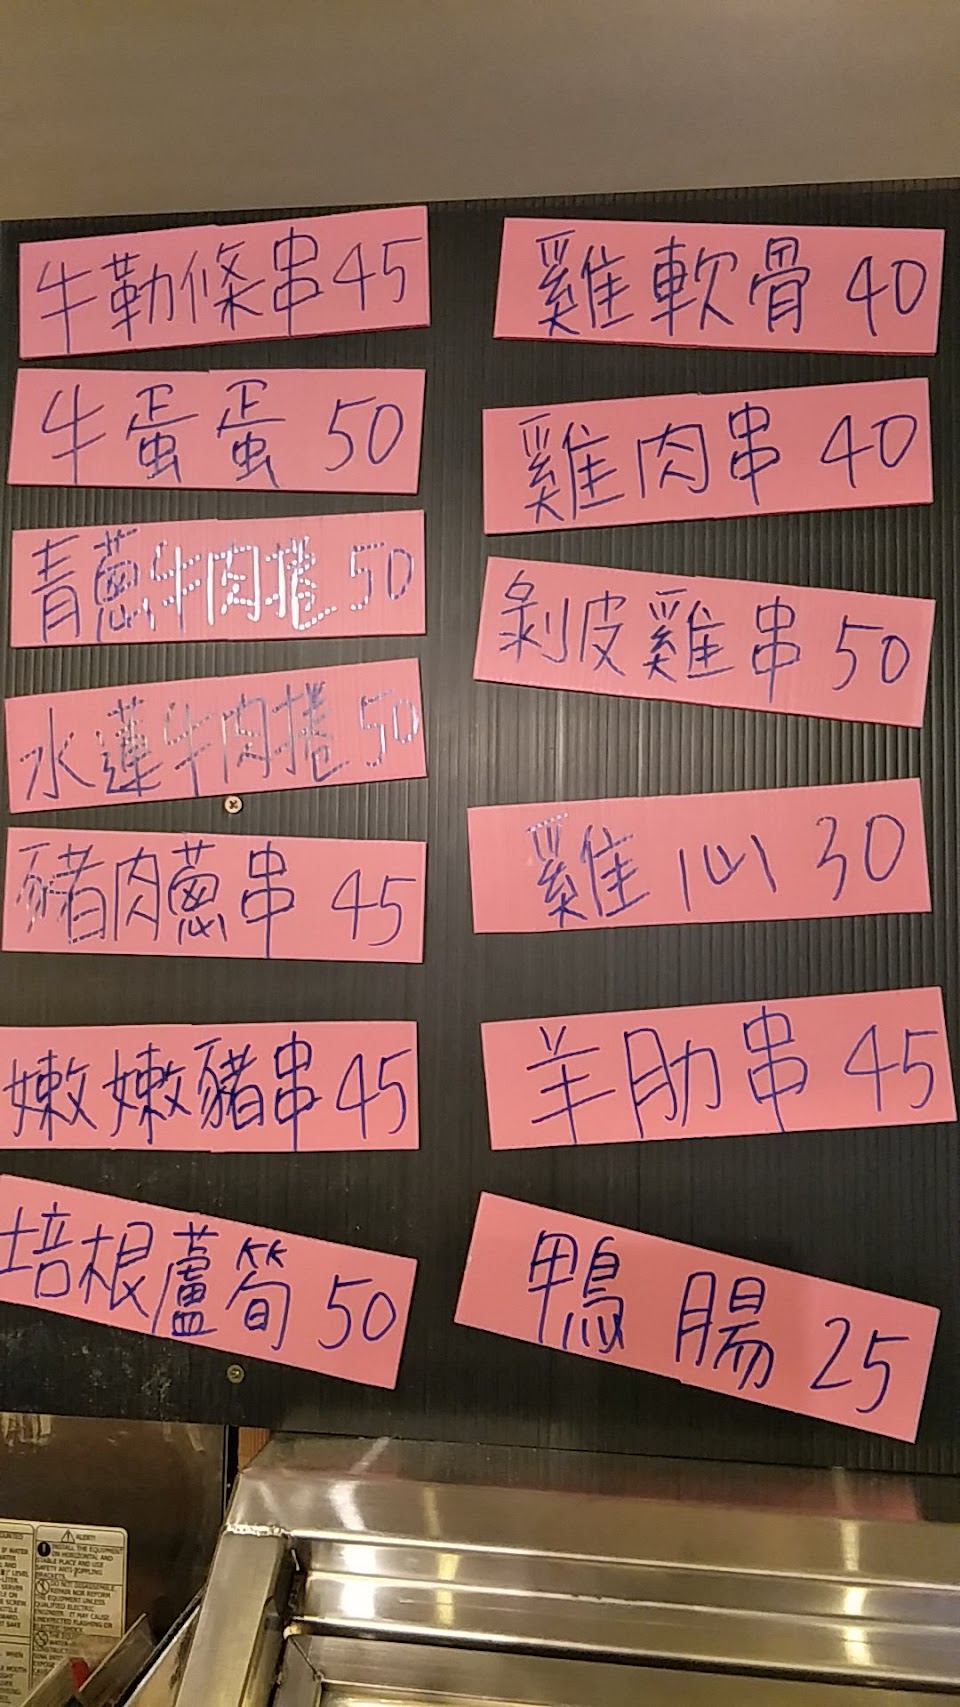 牛勒條串45
牛蛋蛋 50
青蔥牛肉捲 50
水蓮牛肉捲 50
豬肉蔥串 45
嫩嫩豬串 45
培根蘆筍 50
雞軟骨 40
雞肉串 40
剝皮雞串 50
雞心 30
羊肋串 45
鴨腸 25
ALERT!
INSTALL THE EQUIPMENT
ON HORIZONTAL AND
STABLE PLACE AND USE
SAFETY ANTI-TOPPLING
BRACKETS.
DO NOT DISASSEMBLE
REPAIR NOR REFORM
THE EQUIPMENT UNLESS
QUALIFIED ELECTRIC
ENGINEER. IT MAY CAUSE